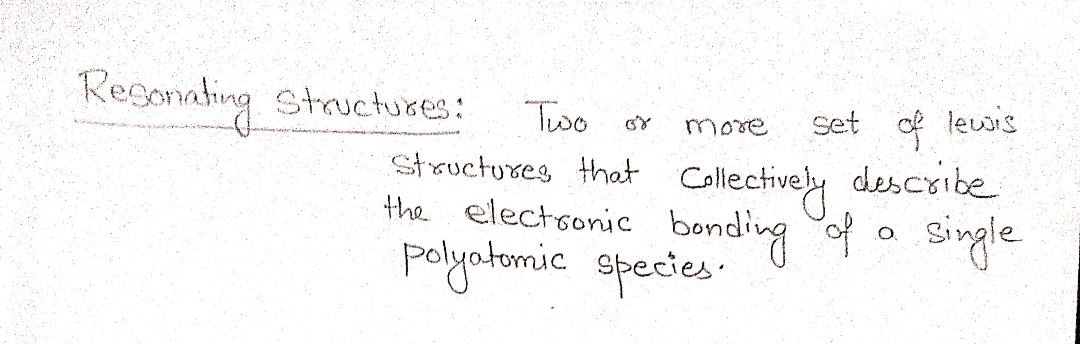 Resonating Structures: Two or more set of lewis
Structures that Collectively describe
the electronic bonding of a single
polyatomic species.